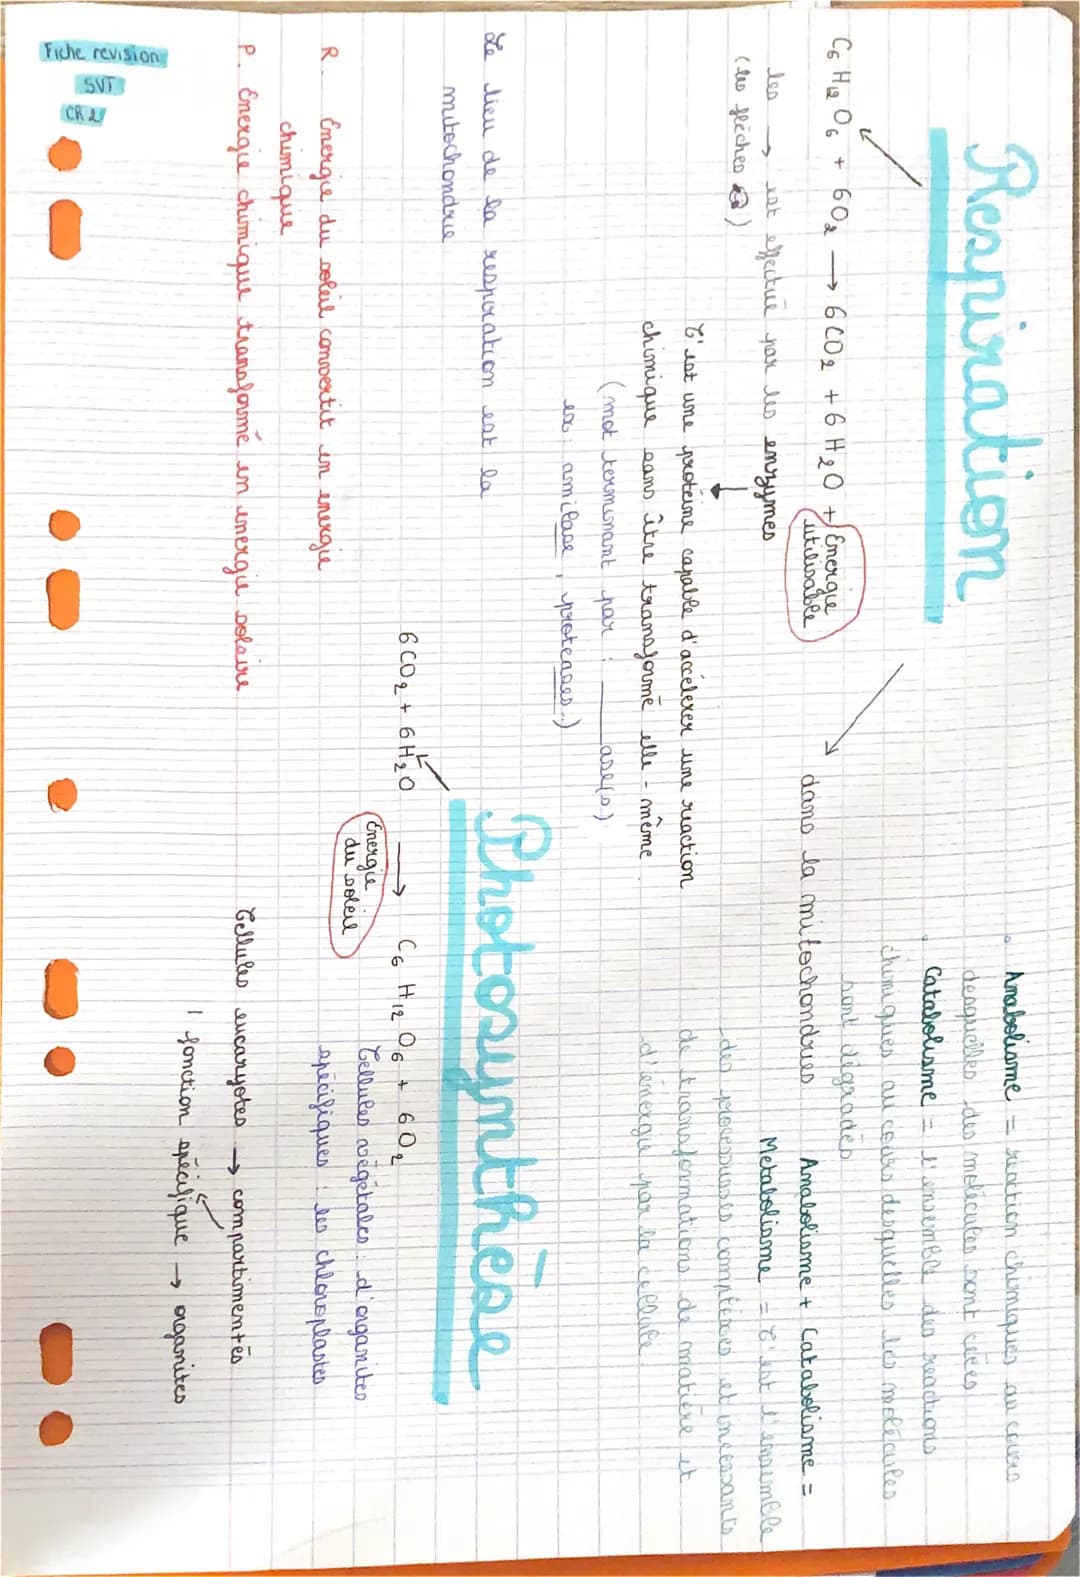 Respiration
C6 H12 O6 + 6O2 → 6CO2 + 6H2O + Énergie utilisable
les → est effectué par les enzymes
(les flèches)
C'est une protéine capable d'accélerer une réaction
chimique sans être transformé elle-même
(mot terminant par : ___ase(s)
ex : amilase, proteases..)
Le lieu de la respiration est la
mitochondrie
R. Énergie du soleil convertit en energie
chimique
P. Énergie chimique transformé en energie solaire
Fiche revision
SVT
CR 2
• Anabolisme = reaction chimiques au cours
desquelles des molécules sont crées
• Catabolisme = l'ensemble des reactions
chimiques au cours desquelles les molécules
sont dégradés
dans la mitochondries
Anabolisme + Catabolisme =
Metabolisme = C'est l'ensemble
des processus complèxes et incessants
de transformations de matière et
d'énergie par la cellule.
Photosynthèse
6CO2 + 6H2O → C6 H12 O6 + 6O2
Énergie
du soleil
Cellules végétales : d'organites
spécifiques : les chloroplastes
Cellules eucaryotes → compartimentés
1 fonction spécifique → organites